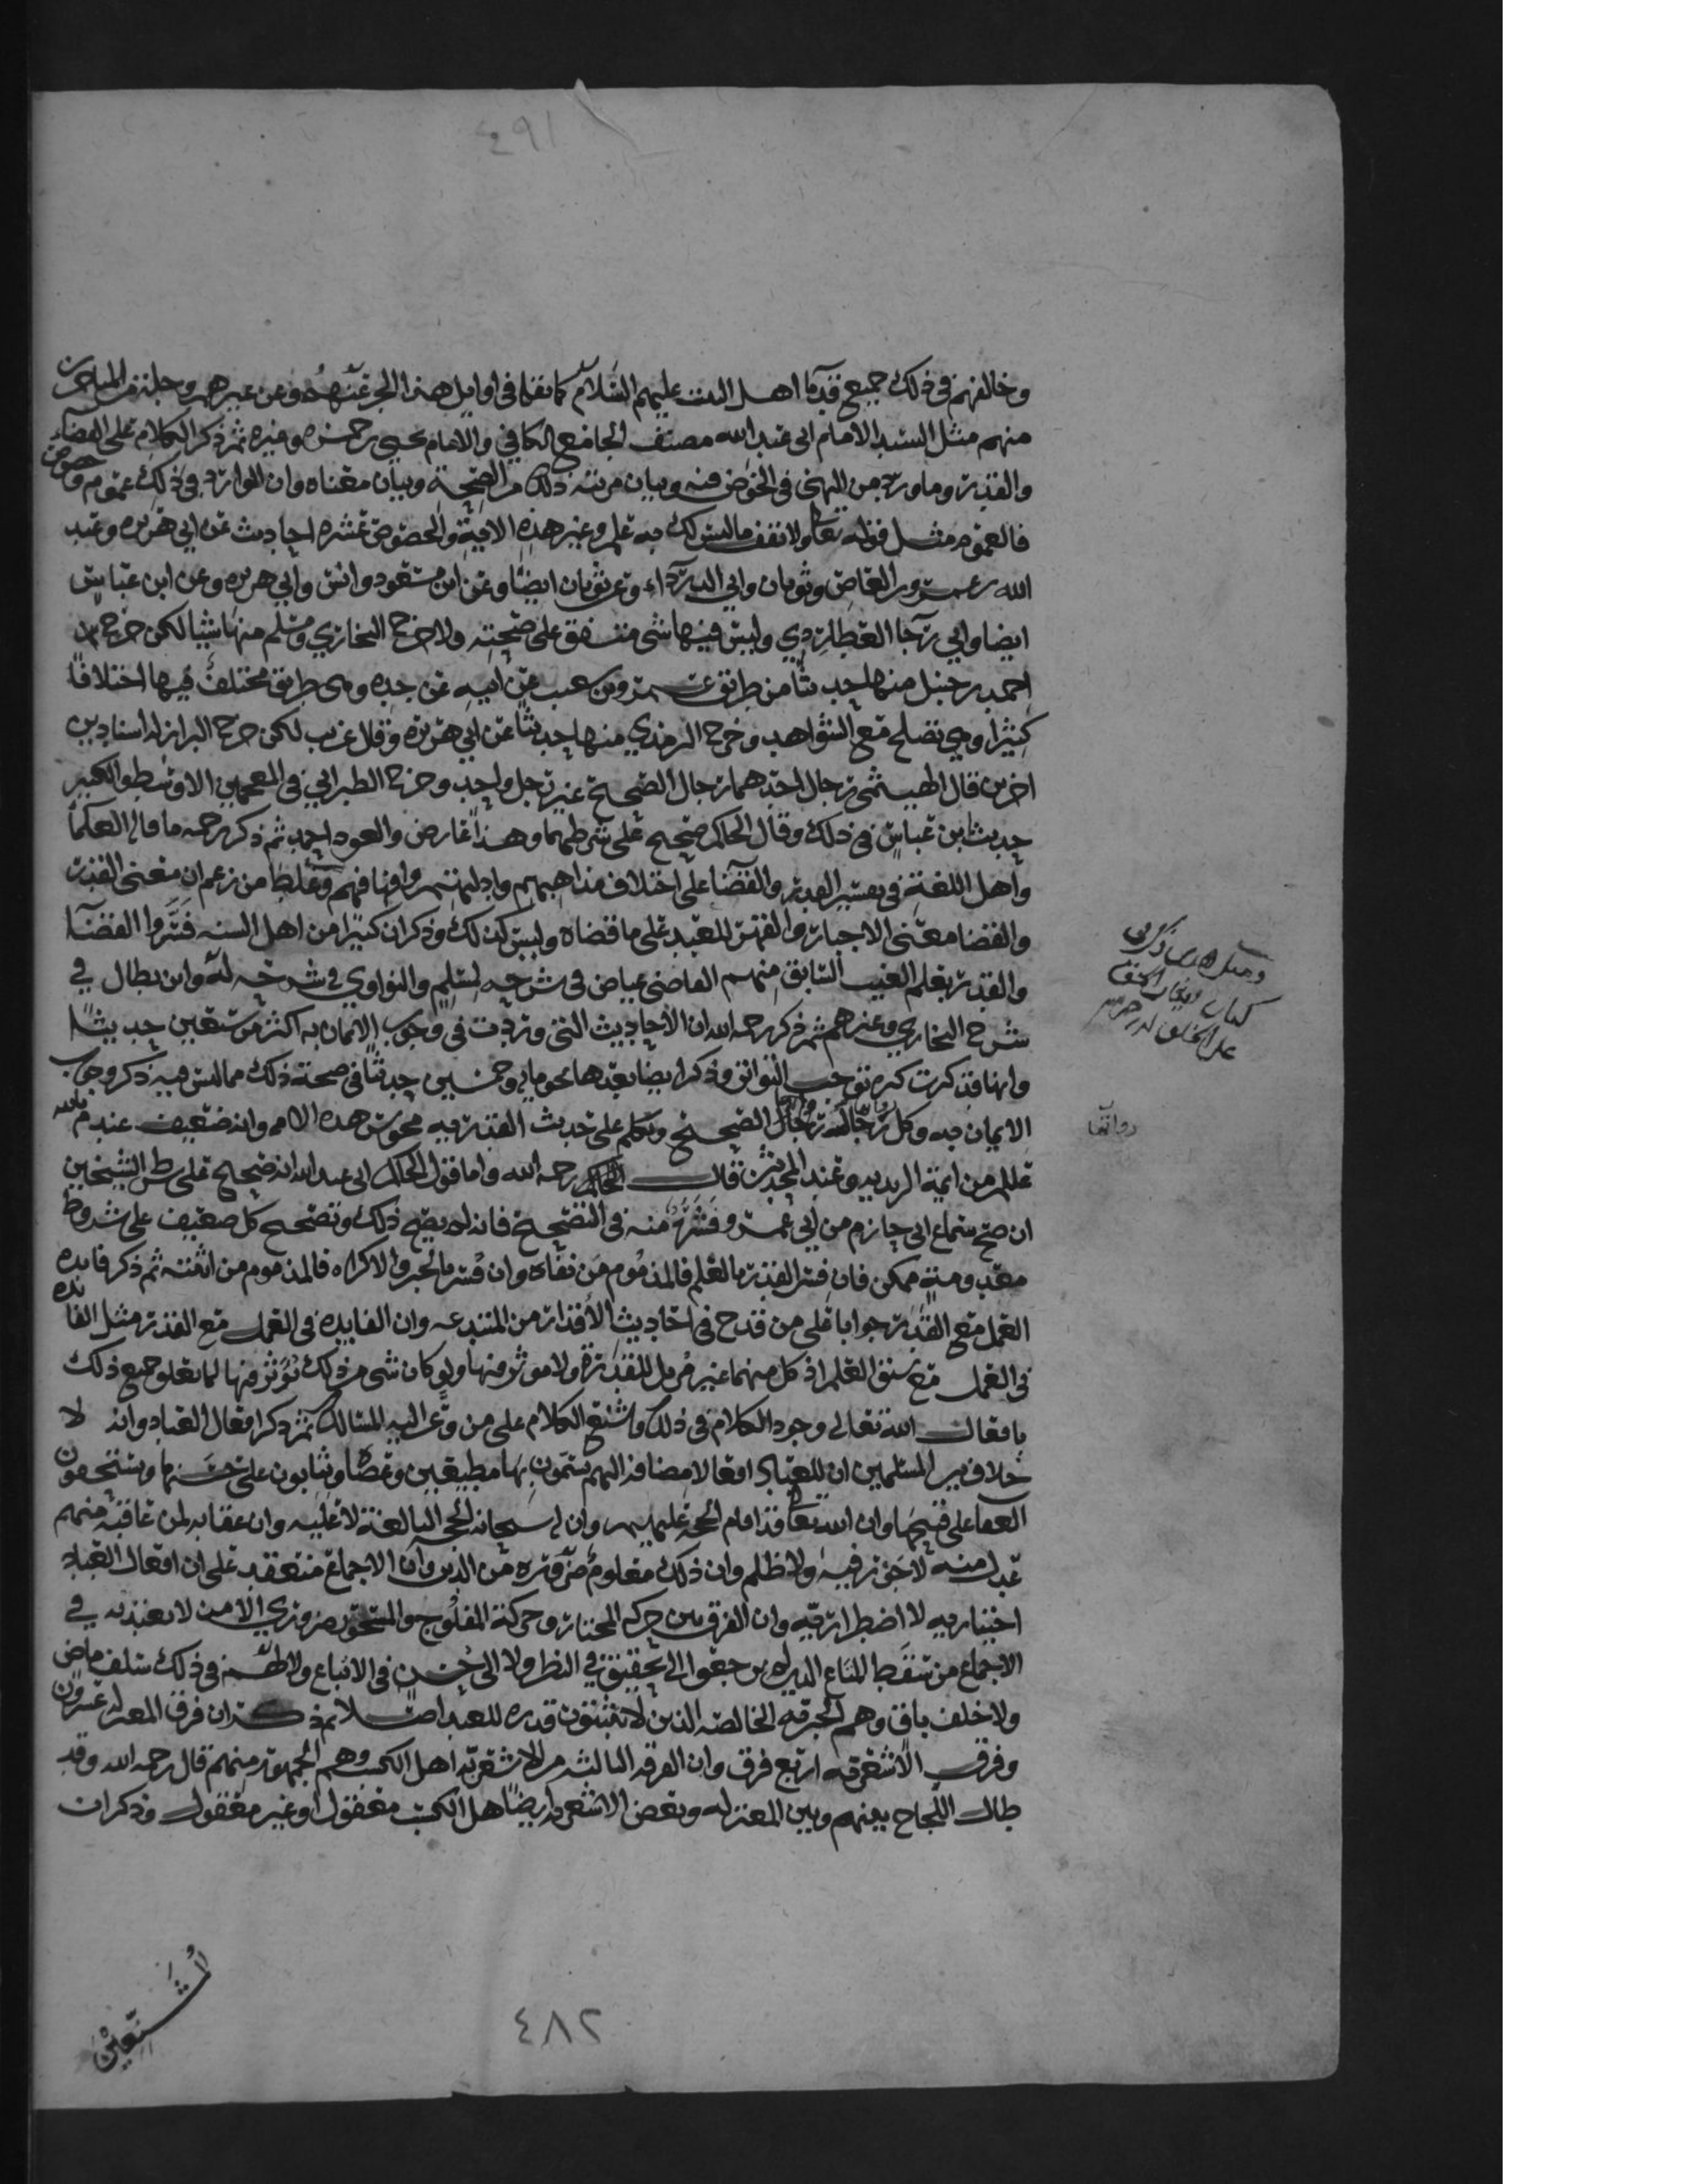 ٤٩١
وخالفهم في ذلك جميع قدماء اهل البيت عليهم السلام كما نقلنا في اوايل هذا الجزء عنهم وعن غيرهم وجلة من المتاخرين
منهم مثل السيد الامام ابي عبد الله مصنف الجامع الكافي والامام يحيى بن حمزه وغيره ثم ذكر الكلام على القضاء
والقدر وما ورد من النهي في الخوض فيه وبيان مرتبه ذلك من الصحة وبيان معناه وان الوارد في ذلك عموم وخصوص
فالعموم مثل قوله تعالى ولا تقف ما ليس لك به علم وغير هذه الاية والخصوص عشره احاديث عن ابي هريره وعبد
الله بن عمرو بن العاص وثوبان وابي الدرداء وعن ثوبان ايضا وعن ابن مسعود وانس وابي هريره وعن ابن عباس
ايضا وابي رجا العطاردي وليس فيها شي متفق على صحته ولا خرج البخاري ومسلم منها شيا لكن خرج
احمد بن حنبل منها حديثا من طريق عمرو بن شعيب عن ابيه عن جده وهي طريق مختلف فيها اختلافا
كثيرا وهي تصلح مع الشواهد وخرج الترمذي منها حديثا عن ابي هريره وقال غريب لكن خرج البزار له اسنادين
اخرين قال الهيثمي رجال احدهما رجال الصحيح غير رجل واحد وخرج الطبراني في المعجمين الاوسط والكبير
حديث ابن عباس في ذلك وقال الحاكم صحيح على شرطهما وهذا عارض والعود احمد ثم ذكر رحمه ما قاله العلما
واهل اللغة في تفسير القدر والقضا على اختلاف مذاهبهم وادلتهم وغلط من زعم ان معنى القدر
والقضا معنى الاجبار والقهر للعبد على ما قضاه وليس كذلك وذكر ان كثيرا من اهل السنه فسروا القضا
والقدر بعلم الغيب السابق منهم القاضي عياض في شرحه لمسلم والنواوي في شرحه له وابن بطال في
شرح البخاري وغيرهم ثم ذكر رحمه الله ان الاحاديث التي وردت في وجوب الايمان به اكثر من سبعين حديثا
وانها قد كثرت كثره توجب التواتر وذكر ايضا بعدها نحو مايه وخمسين حديثا في صحة ذلك مما ليس فيه ذكر وجوب
الايمان به وكل رجاله رجال الصحيح وتكلم على حديث القدريه مجوس هذه الامه وانه ضعيف عند
من ايمة الزيديه وعند المحدثين قال رحمه الله واما قول الحاكم ابي عبد الله انه صحيح على شرط الشيخين
ان صح سماع ابي حازم من ابن عمر منه في التصحيح فانه لم يصح ذلك وتصحيح كل ضعيف على شروط
معدومة ممكن فان فسر القدر بالعلم فالمذموم من نفاه وان فسر بالجبر والاكراه فالمذموم من اثبته ثم ذكر فايده
العمل مع القدر جوابا على من قدح في احاديث الاقدار من المبتدعه وان الفايده في العمل مع القدر مثل الفايده
في العمل مع سبق العلم اذ كل منهما غير مزيل للقدرة ولا موثر فيها ولو كان شي من ذلك يؤثر فيها لما تعلق جميع ذلك
بافعال الله تعالى وجود الكلام في ذلك واشبع الكلام على من وعر اليه المسالك ثم ذكر افعال العباد وانه لا
خلاف بين المسلمين ان للعباد افعالا مضافه اليهم يسمون بها مطيعين وعصاة ويثابون على حسنها ويستحقون
العقاب على قبيحها وان الله تعالى قد اقام الحجه عليهم وان له سبحانه الحجة البالغة لا عليه وان عقابه لمن عاقبه منهم
عدل منه لا حيف فيه ولا ظلم وان ذلك معلوم ضرورة من الدين وان الاجماع منعقد على ان افعال العباد
اختياريه لا اضطراريه وان الفرق بين حركه المختار وحركة المفلوج والمسحوب ضروري الامن لا يعتد به في
الاجماع من سقط المتاع الذين لم يرجعوا الى تحقيق في النظر ولا الى حسن في الاتباع ولا لهم في ذلك سلف ماض
ولا خلف باق وهم الجبريه الخالصه الذين لا يثبتون قدره للعبد اصلا ثم ذكر ان فرق المعتزله عشرون
وفرق الاشعريه اربع فرق وان الفرقه الثالثه من الاشعريه اهل الكسب وهم الجمهور منهم قال رحمه الله وقد
طال اللجاج بينهم وبين المعتزله وبعض الاشعريه ايضا هل الكسب معقول او غير معقول وذكر ان
رواتها
٤٨٢